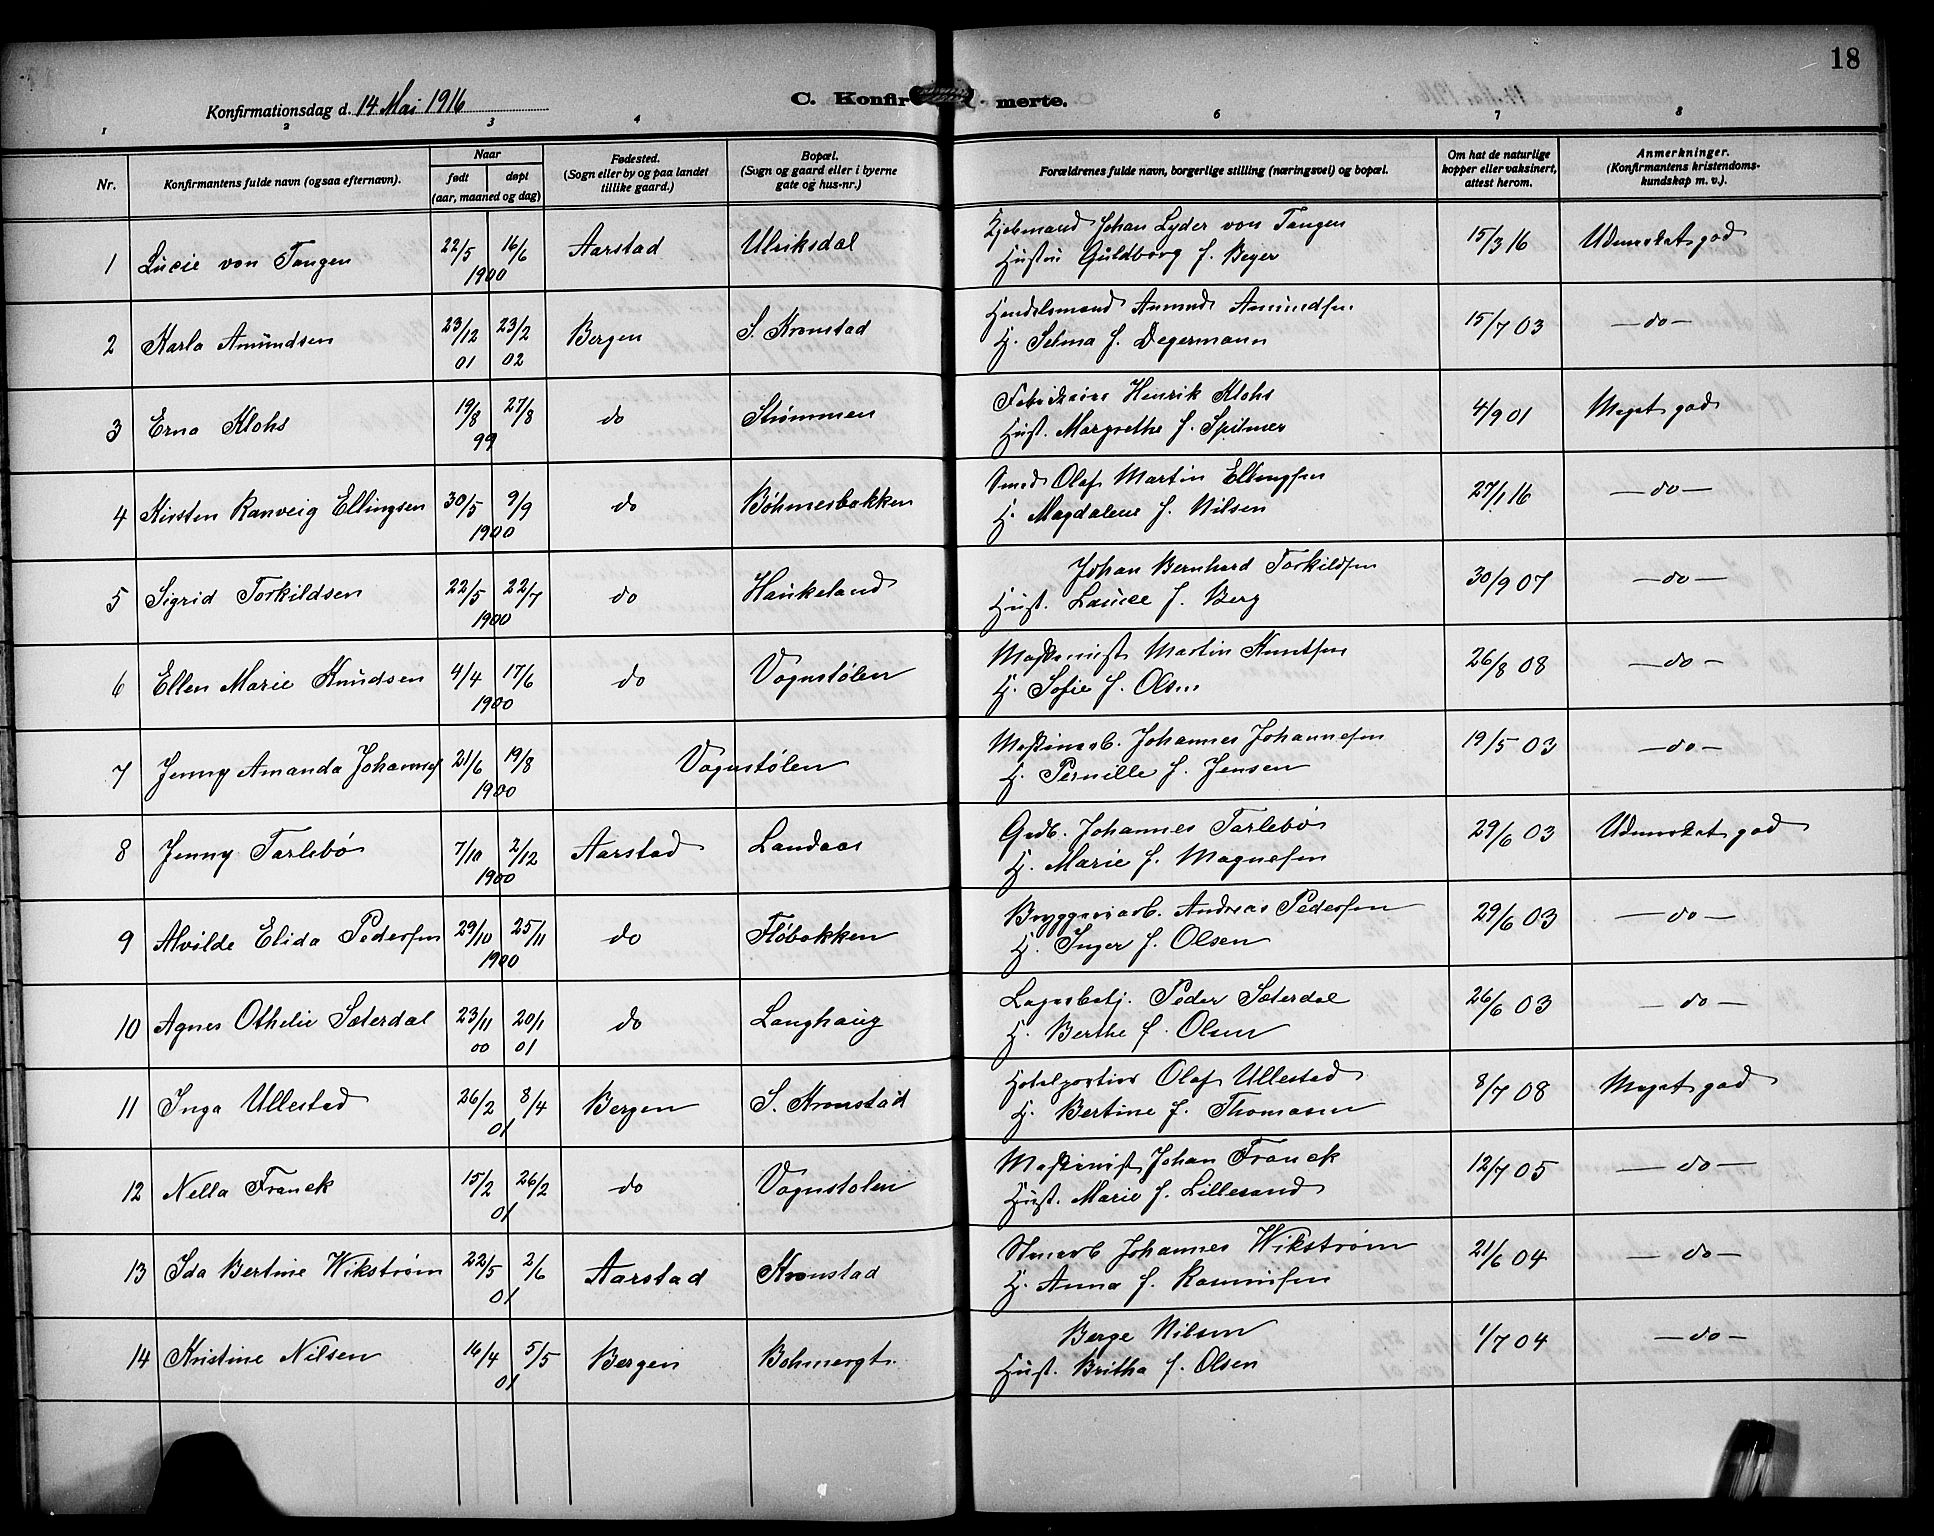 18
Konfirmationsdag d. 14 Mai 1916
C. Konfir merte.
1 2 3 4 6 7 8
Nr.
Konfirmantens fulde navn (ogsaa efternavn).
Naar
født døpt
(aar, maaned og dag)
Fødested.
(Sogn eller by og paa landet
tillike gaard.)
Bopæl.
(Sogn og gaard eller i byerne
gate og hus-nr.)
Forældrenes fulde navn, borgerlige stilling (næringsvei) og bopæl.
Om hat de naturlige
kopper eller vaksinert,
attest herom.
Anmerkninger.
(Konfirmantens kristendoms-
kundskap m. v.).
Kjøbmand Johan Lyder von Tangen
1 Lucie von Tangen 22/5 16/6 Aarstad Ulriksdal 15/3 16 Udmerket god
1900 Hustru Guldborg f. Beyer
Handelsmand Anmund Amundsen
2 Karla Amundsen 23/12 23/2 Bergen S. Kronstad 15/7 03 – do –
01 02 H. Selma f. Degermann
Henrik Klohs
3 Erna Klohs 19/8 27/8 do Strømmen 4/9 01 Meget god
99 Hust. Margrethe f. Spilmer
Smed Olaf Martin Ellingsen
4 Kirsten Ranveig Ellingsen 30/5 9/9 do Bøhmesbakken 27/1 16 – do –
1900 H. Magdalene f. Nilsen
Johan Bernhard Torkildsen
5 Sigrid Torkildsen 22/5 22/7 do Haukeland 30/9 07 – do –
1900 Hust. f. Berg
Maskinist Martin Knutsen
6 Ellen Marie Knudsen 4/4 17/6 do Vognstølen 26/8 08 – do –
1900 H. Sofie f. Olsen
Maskinarb. Johannes Johannesen
7 Jenny Amanda Johannes 21/6 19/8 Vognstølen 19/5 03 – do –
1900 H. Pernille f. Jensen
Grdb. Johannes Tarlebø
8 Jenny Tarlebø 7/10 2/12 Aarstad Landaas 29/6 03 Udmerket god
1900 H. Marie f. Magnesen
Bryggeriarb. Andreas Pedersen
9 Alvilde Elida Pedersen 29/10 25/11 do Fløbakken 29/6 03 – do –
1900 H. Inger f. Olsen
Lagerbetj. Peder Sæterdal
10 Agnes Othelie Sæterdal 23/11 20/1 do Langhaug 26/6 03 – do –
00 01 H. Berthe f. Olsen
Hotelportier Olaf Ullestad
11 Inga Ullestad 26/2 8/4 Bergen S. Kronstad 8/7 08 Meget god
01 H. Bertine f. Thomasen
Maskinist Johan Franck
12 Nella Franck 15/2 26/2 do Vognstølen 12/7 05 – do –
01 Hust. Marie f. Lillesand
Stenarb Johannes Wikstrøm
13 Ida Bertine Wikstrøm 22/5 2/6 Aarstad Kronstad 21/6 04 – do –
01 H. Anna f. Rasmussen
Berge Nilsen
14 Kristine Nilsen 16/4 5/5 Bergen Bøhmergt. 1/7 04 – do –
01 Hust. Britha f. Olsen